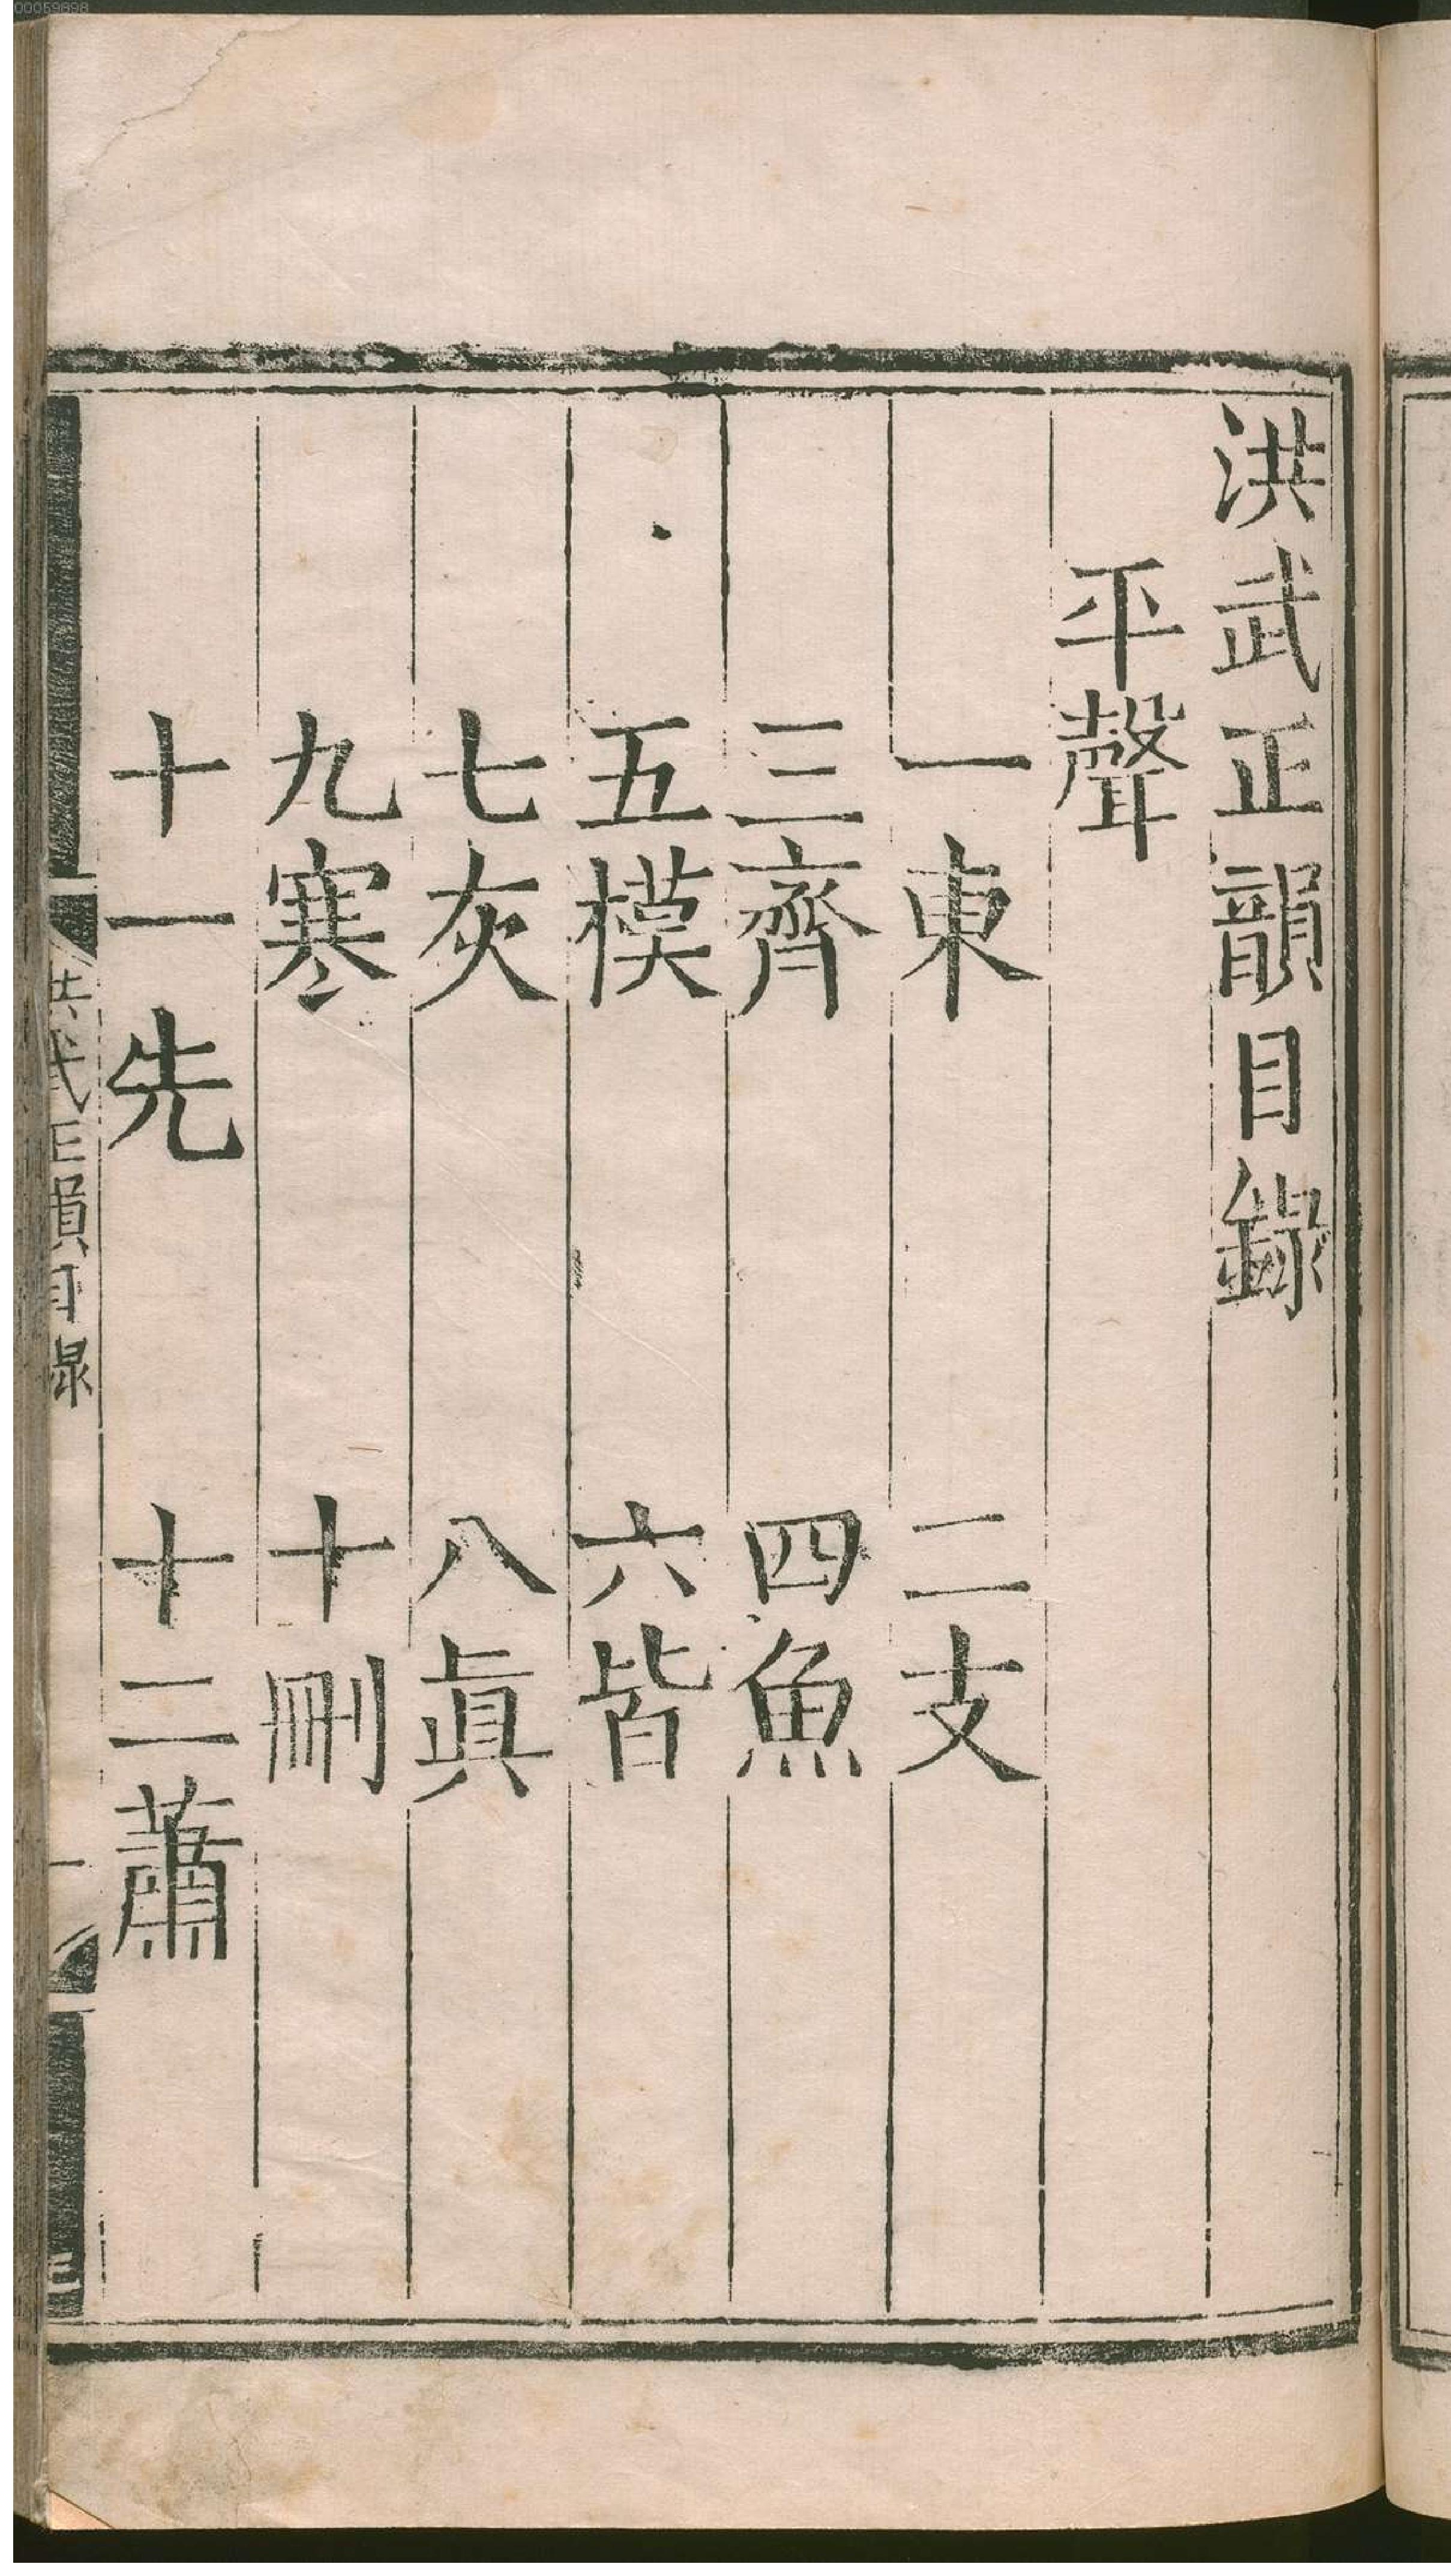 洪武正韻目錄
平聲
一東 二支
三齊 四魚
五模 六皆
七灰 八眞
九寒 十刪
十一先 十二蕭
洪武正韻目錄 一
00059898